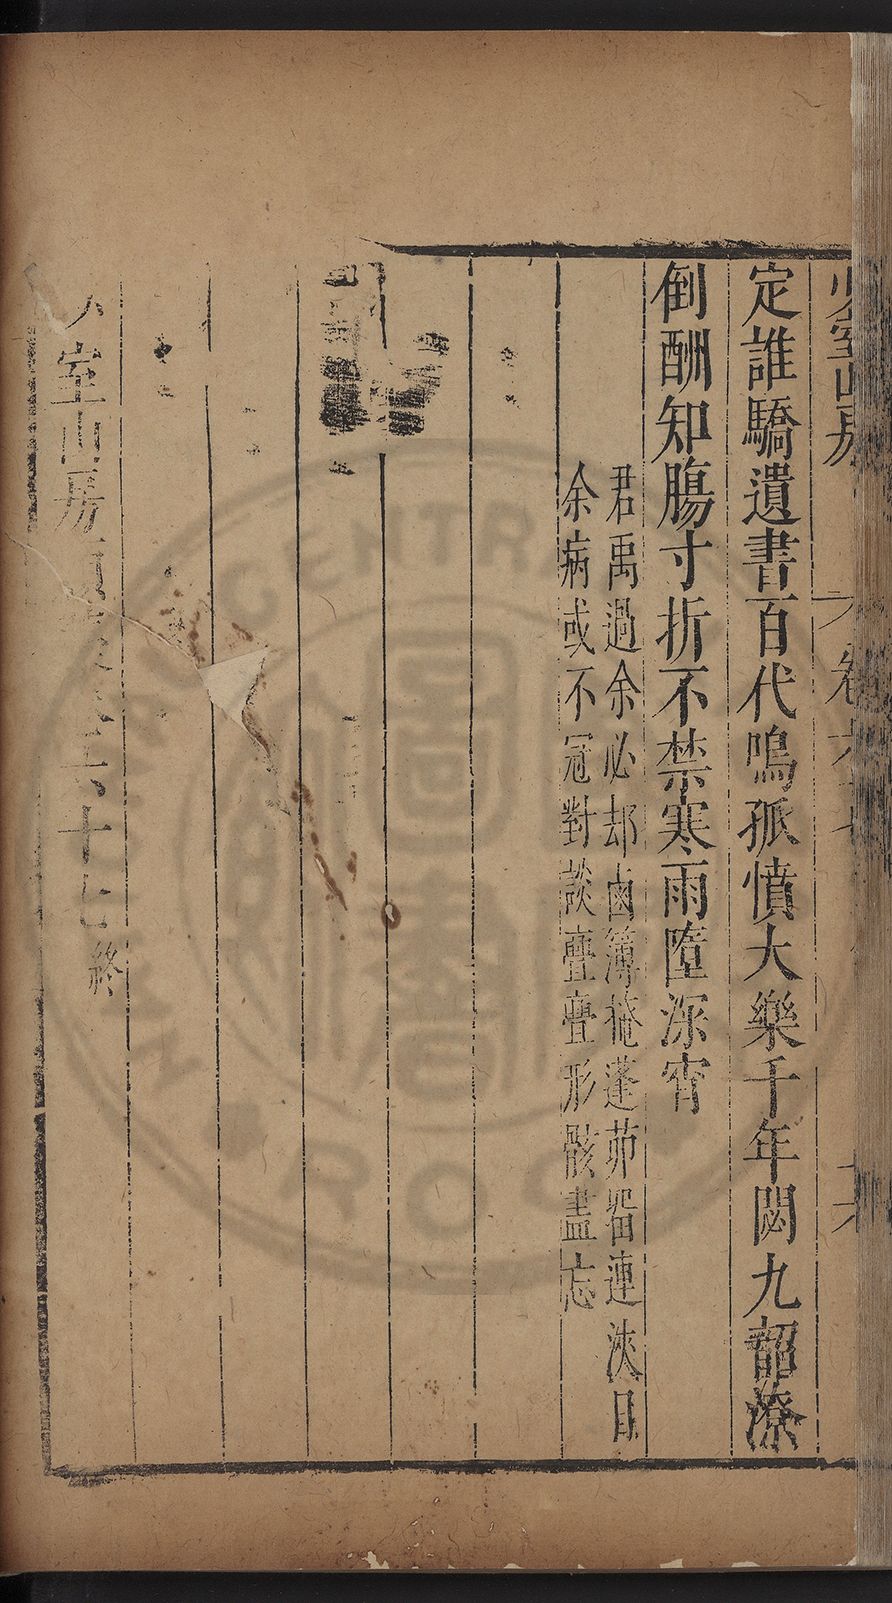 少室山房 卷六十七
定誰驕遺書百代鳴孤憤大樂千年閟九韶潦
倒酬知腸寸折不禁寒雨墮深宵
君禹過余必却鹵簿掩蓬茆畱連浹日
余病或不冠對談亹亹形骸盡忘
少室山房 六十七終